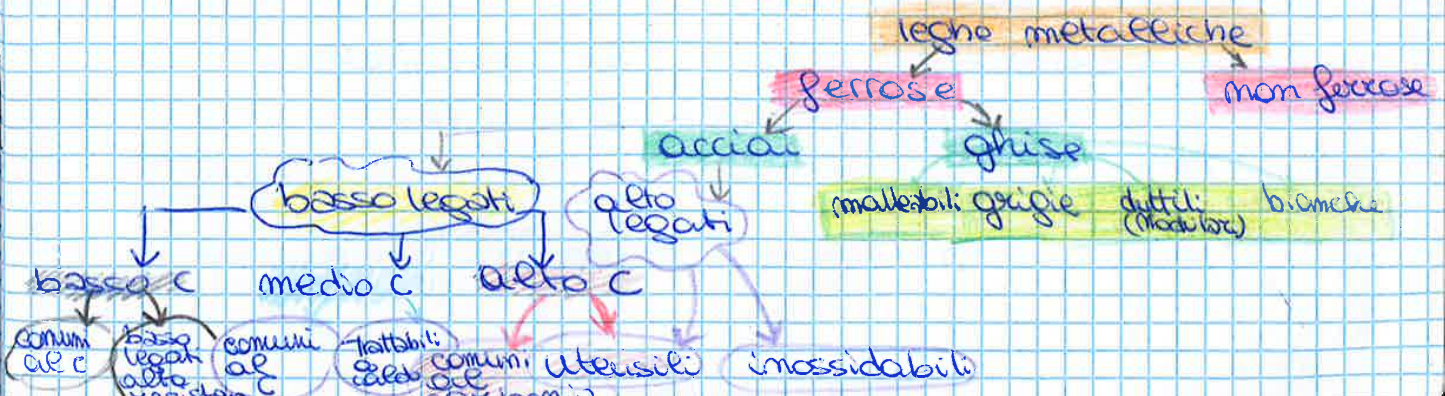 leghe metalliche
ferrose
non ferrose
acciai
ghise
basso legati
alto
legati
malleabili grigie duttili bianche
(nodulari)
basso C
medio C
alto C
comuni
al C
basso
legati
alta
comuni
al
C
trattabili
a
caldo
comuni
al
utensili
inossidabili